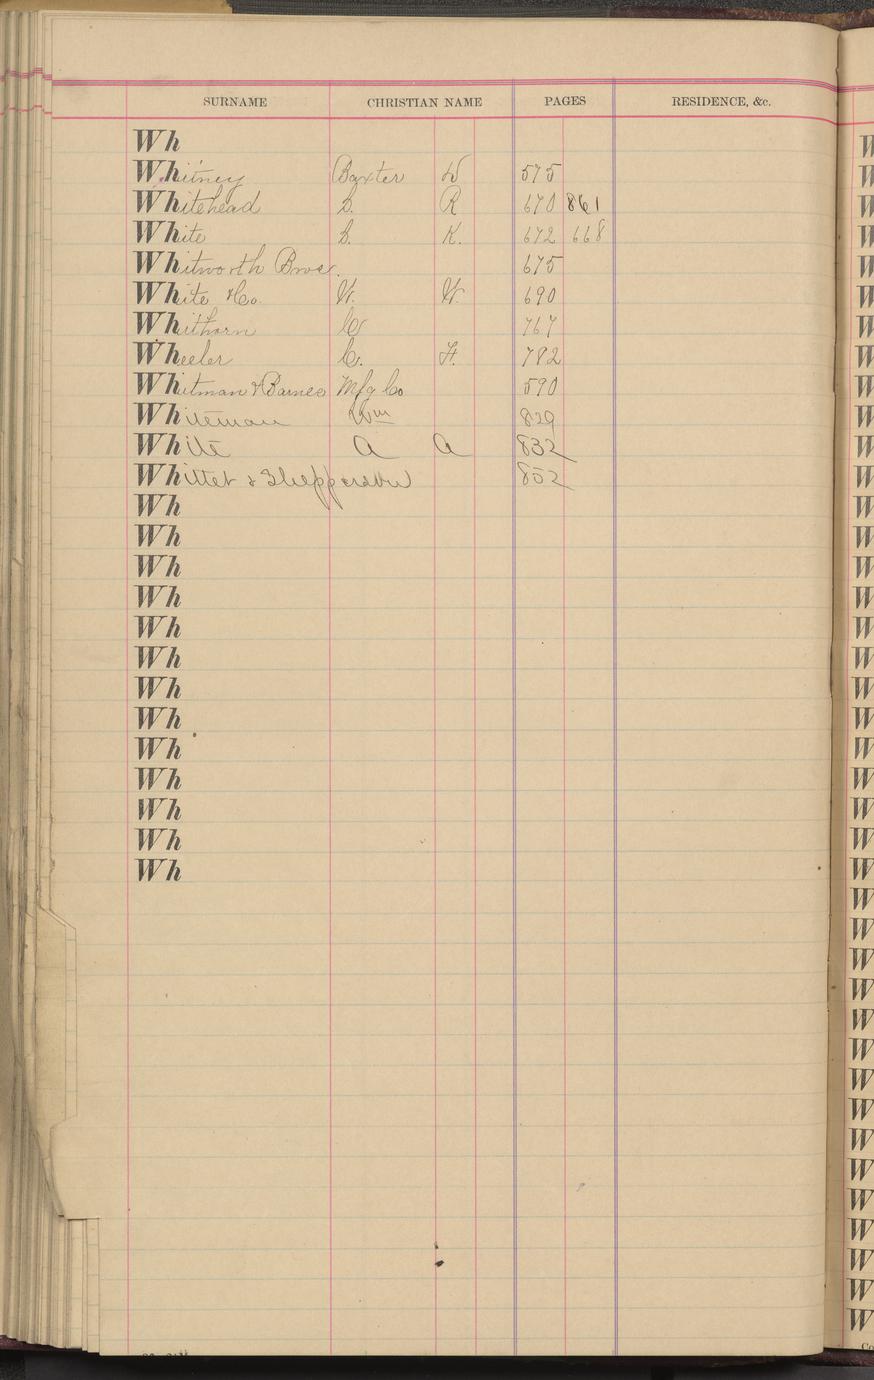 SURNAME CHRISTIAN NAME PAGES RESIDENCE, &c.
Wh
Whitney Baxter D 575
Whitehead S. R 670 861
White S. K. 672 668
Whitworth Bros. 675
White & Co. W. W. 690
Whithorn C 767
Wheeler C. F. 782
Whitman & Barnes Mfg Co 590
Whiteman Wm 829
White A A 832
Whittet & Shepperson 852
Wh
Wh
Wh
Wh
Wh
Wh
Wh
Wh
Wh
Wh
Wh
Wh
Wh